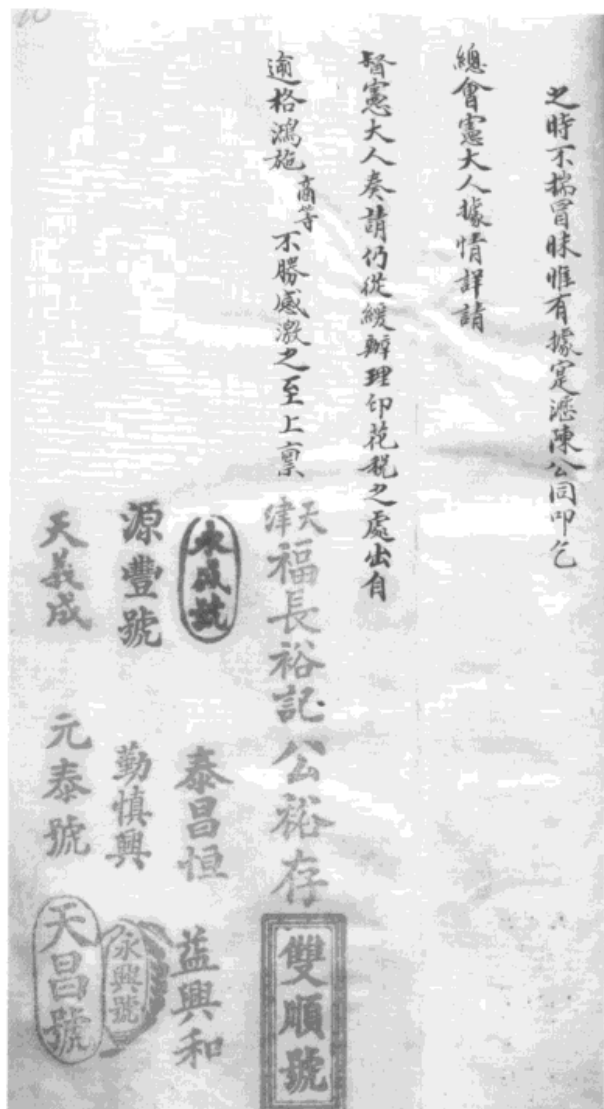 之時不揣冒昧惟有據寔瀝陳公同叩乞
總會憲大人據情詳請
督憲大人奏請仍從緩辦理印花稅之處出自
逾格鴻施商等不勝感激之至上稟
天津福長裕記
公裕存
雙順號
永成號
泰昌恒
益興和
源豐號
勤慎興
永興號
天義成
元泰號
天昌號